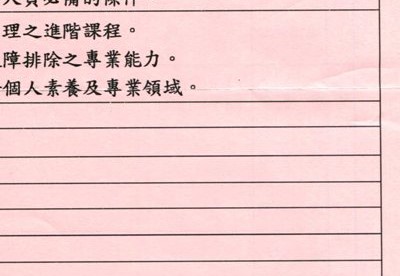 人員必備的條件
理之進階課程。
障排除之專業能力。
個人素養及專業領域。